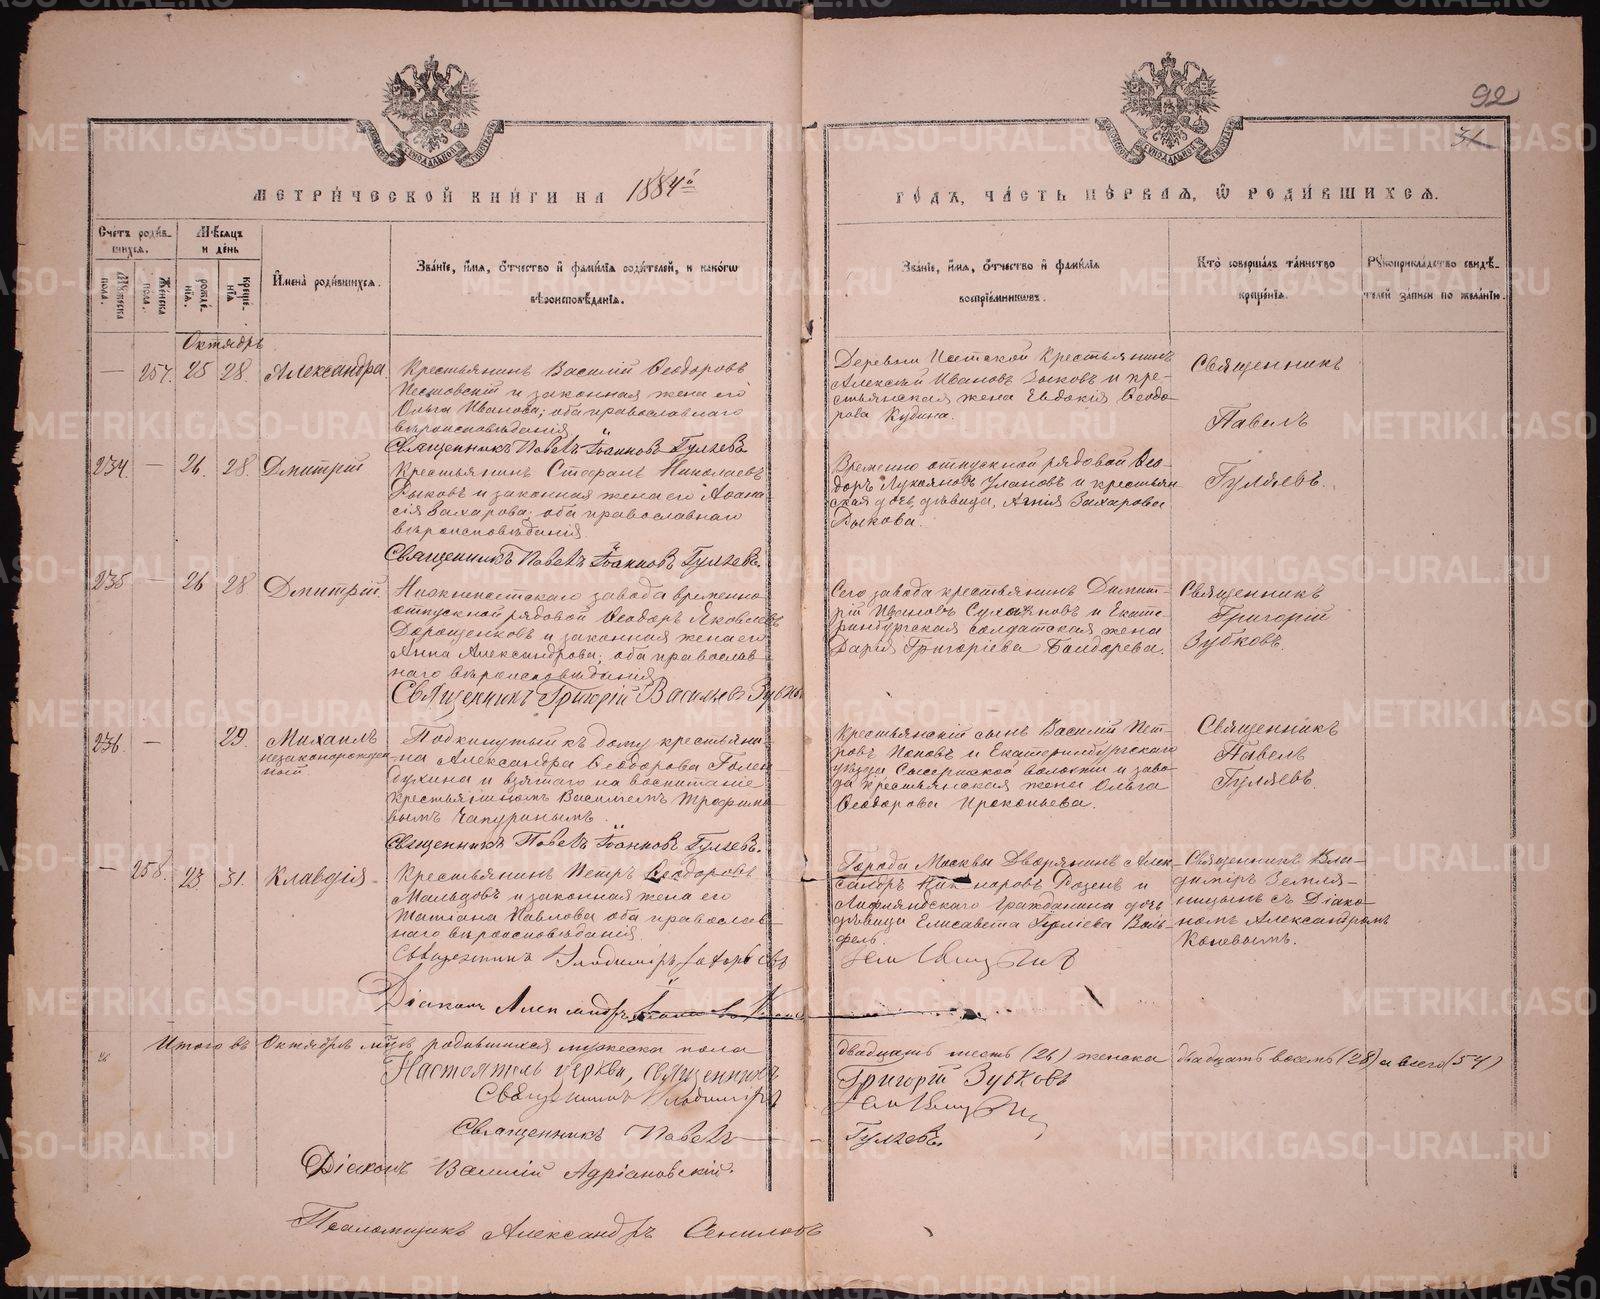 92
31
МЕТРИЧЕСКОЙ КНИГИ НА 1884й
ГОДЪ, ЧАСТЬ ПЕРВАЯ, Ѡ РОДИВШИХСЯ.
Счетъ родившихся.
Мѣсяцъ и день
Имена родившихся.
Званіе, имя, отчество и фамилія родителей, и какогѡ
вѣроисповѣданія.
Званіе, имя, отчество и фамилія
воспріемниковъ.
Кто совершалъ таинство
крещенія.
Рукоприкладство свидѣ-
телей записи по желанію.
Мужеска пола.
Женска пола.
рожденія.
крещенія
Октябрь
— 257. 25 28. Александра
Крестьянинъ Василій Ѳеодоровъ
и законная жена его
Ольга Иванова; оба православнаго
вѣроисповѣданія
Священникъ Павелъ Іоанновъ Гуляевъ
Деревни Крестьянинъ
Алексѣй Ивановъ Зыковъ и кре-
стьянская жена Евдокія Ѳеодо-
рова Кудина.
Священникъ
Павелъ
234. — 26. 28. Дмитрій
Крестьянинъ Стефанъ Николаевъ
Зыковъ и законная жена его Аѳана-
сія Захарова; оба православнаго
вѣроисповѣданія
Священникъ Павелъ Іоанновъ Гуляевъ.
Временно отпускной рядовой Ѳео-
доръ Лукояновъ Улановъ и крестьян
ская дочь дѣвица, Агнія Захарова
Зыкова.
Гуляевъ.
235 — 26 28 Дмитрій.
завода временно
отпускной рядовой Ѳеодоръ Яковлевъ
Дорощенковъ и законная жена его
Анна Александрова; оба православ-
наго вѣроисповѣданія
Священникъ Григорій Васильевъ Зубковъ
Сего завода крестьянинъ Димит-
рій Ивановъ Сухановъ и Екате-
ринбургская солдатская жена
Дарія Григоріева Балдорева.
Священникъ
Григорій
Зубковъ.
236. — 29. Михаилъ
незаконорожден-
ный
Подкинутый къ дому крестьяни-
на Александра Ѳеодорова Голен-
духина и взятаго на воспитаніе
крестьяниномъ Василіемъ Трофимо-
вымъ Чапуринымъ.
Священникъ Павелъ Іоанновъ Гуляевъ.
Крестьянскій сынъ Василій Пет-
ровъ Поповъ и Екатеринбургскаго
уѣзда Сысертской волости и заво-
да крестьянская жена Ольга
Ѳеодорова Прокопьева.
Священникъ
Павелъ
Гуляевъ.
— 258. 23 31. Клавдія
Крестьянинъ Петръ Ѳеодоровъ
Мальцовъ и законная жена его
Татіана Павлова оба православ-
наго вѣроисповѣданія.
Священникъ
Діаконъ Александръ
Города Москвы Дворянинъ Алек-
сандръ Розенъ и
Лифляндскаго Гражданина дочь
дѣвица Елисавета Юліева Воль-
фель.
Священникъ Вла-
диміръ Земля-
ницынъ съ Діако-
номъ Александромъ
Коневымъ.
Итого въ Октябрѣ мцѣ родившихся мужеска пола
двадцать шесть (26) женска двадцать восемь (28) а всего (54)
Настоятель церкви, священникъ Григорій Зубковъ
Священникъ
Священникъ Павелъ — Гуляевъ.
Діаконъ Василій Адріановскій.
Псаломщикъ Александръ
METRIKI.GASO-URAL.RU